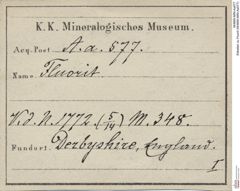 K. K. Mineralogisches Museum.
Acq. Post A. a. 577.
Name: Fluorit.
V. d. N. 1772 (5/14) M. 348.
Fundort: Derbyshire, England.
I